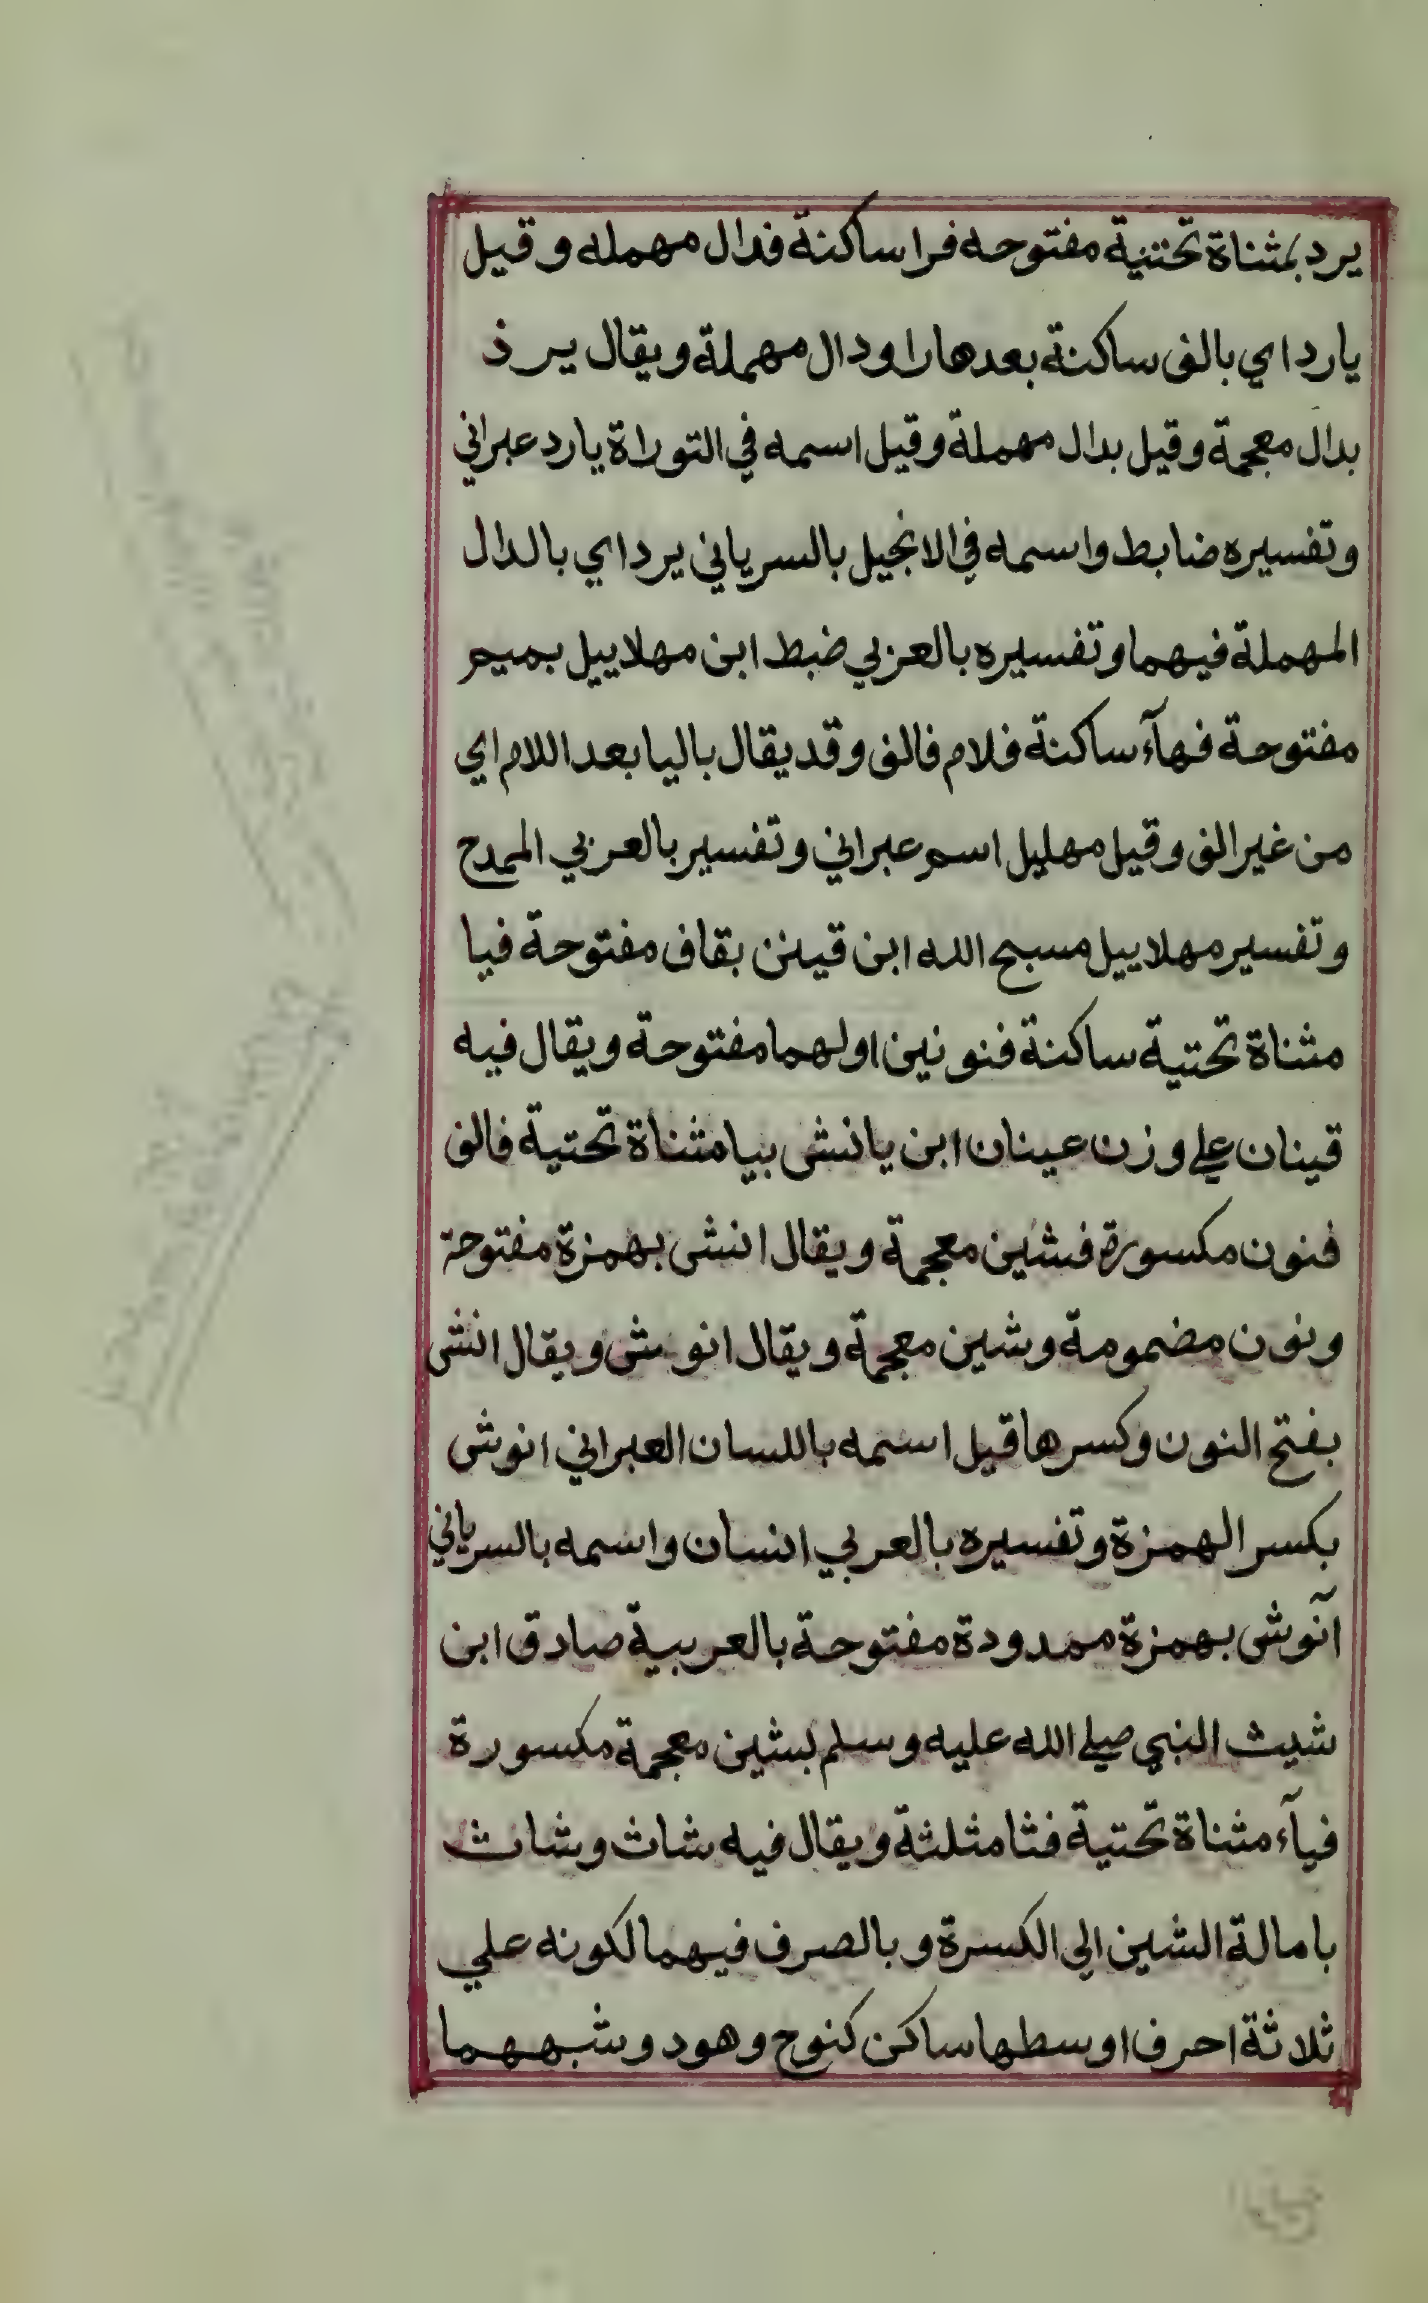 يرد بمثناة تحتنية مفتوحه فرا ساكنة فدال مهمله وقيل
يارد اي بالف ساكنة بعدها را ودال مهملة ويقال يرذ
بدال معجمة وقيل بدال مهملة وقيل اسمه في التوراة يارد عبراني
وتفسيره ضابط واسمه في الانجيل بالسرياني يرد اي بالدال
المهملة فيهما وتفسيره بالعزبي ضبط ابن مهلاييل بميم
مفتوحة فهآء ساكنة فلام فالف وقد يقال باليا بعد اللام اي
من غير الف وقيل مهليل اسم عبراني وتفسير بالعربي الممدح
وتفسير مهلاييل مسبح الله ابن قينن بقاف مفتوحة فيا
مثناة تحتية ساكنة فنونين اولهما مفتوحة ويقال فيه
قينان علي وزن عينان ابن يانش بيا مثناة تحتية فالف
فنون مكسورة فشين معجمة ويقال انش بهمزة مفتوحة
ونون مضمومة وشين معجمة ويقال انوش ويقال انش
بفتح النون وكسرها قيل اسمه باللسان العبراني انوش
بكسر الهمزة وتفسيره بالعربي انسان واسمه بالسرياني
آنوش بهمزة ممدودة مفتوحة بالعربية صادق ابن
شيث النبي صلي الله عليه وسلم بشين معجمة مكسورة
فيآء مثناة تحتية فثا مثلثة ويقال فيه شاث وشاث
بامالة الشين الي الكسرة وبالصرف فيهما لكونه علي
ثلاثة احرف اوسطها ساكن كنوح وهود وشبههما